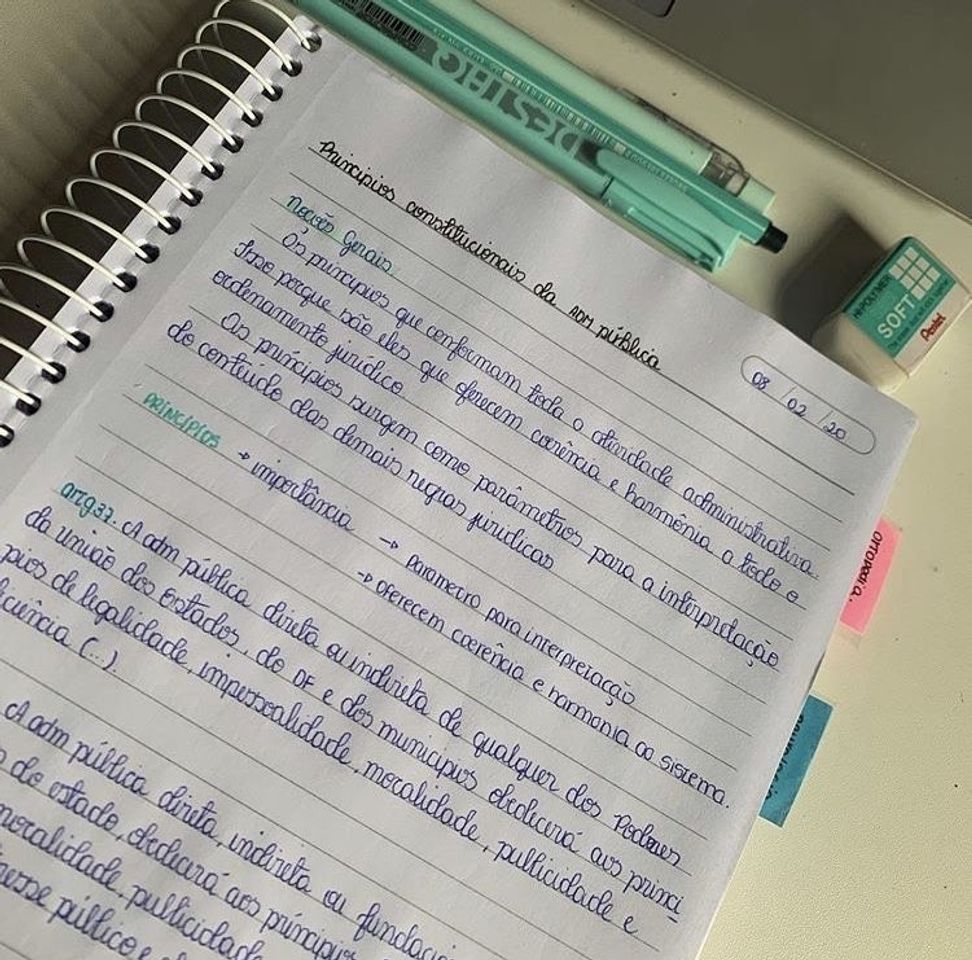 Princípios constitucionais da ADM pública
08/02/20
Noções Gerais
Os princípios que conformam toda a atividade administrativa.
Isso porque são eles que oferecem coerência e harmonia a todo o
ordenamento jurídico
Os princípios surgem como parâmetros para a interpretação
do conteúdo das demais regras jurídicas
PRINCÍPIOS → importância → Parametro para interpretação
→ oferecem coerência e harmonia ao sistema.
artg37. A adm pública direta ou indireta de qualquer dos Poderes
da união dos estados, do DF e dos municípios obedecerá aos princí
pios de legalidade, impessoalidade, moralidade, publicidade e
ficiência (...).
A adm pública direta, indireta ou fundaci
do estado, obedecerá aos princípios
moralidade, publicidade
resse público e
DIESTHO
HI-POLYMER
SOFT
Pentel
ORTOPEDIA.